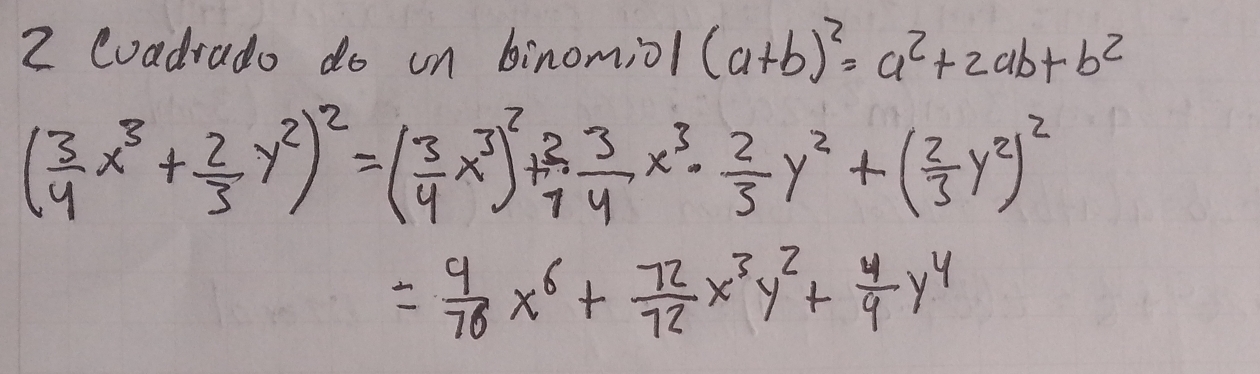 2 Cuadrado de un binomiol (a+b)² = a² + 2ab + b²
(3/4 x³ + 2/3 y²)² = (3/4 x³)² + 2/1 · 3/4 x³ · 2/3 y² + (2/3 y²)²
= 9/16 x⁶ + 12/12 x³y² + 4/9 y⁴